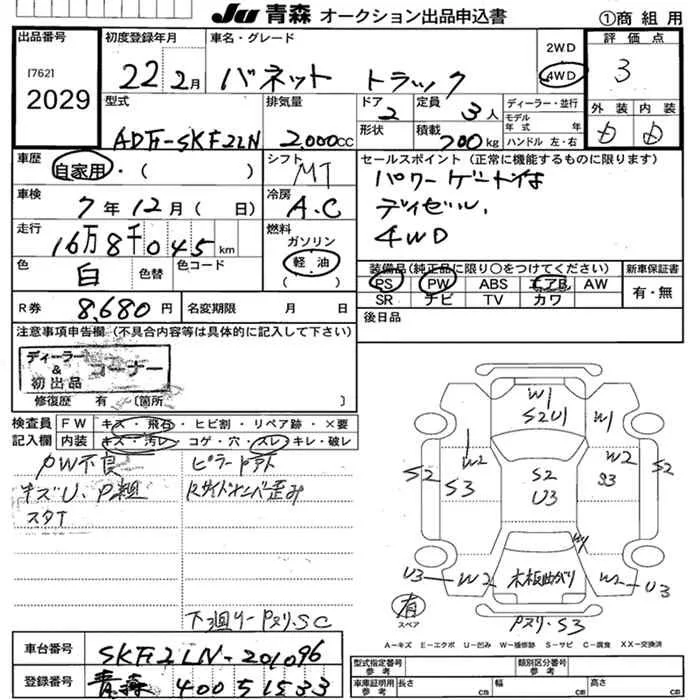 JU 青森 オークション出品申込書
①商組用
出品番号
[762]
2029
初度登録年月
22年2月
車名・グレード
バネット トラック
2WD
4WD
評価点
3
外装 内装
型式
排気量
2,000cc
ドア
2
定員
3人
形状
積載
700kg
ディーラー・並行
モデル
年式 年
ハンドル 左・右
車歴
自家用・( )
シフト
MT
車検
7年12月( 日)
冷房
A.C
走行
16万8千045km
燃料
ガソリン
軽油
色
白
色替
色コード
R券
8,680円
名変期限 月 日
セールスポイント(正常に機能するものに限ります)
パワーゲート付
ディゼル、
4WD
装備品(純正品に限り〇をつけてください)
新車保証書
PS PW ABS エアB AW
SR ナビ TV カワ
有・無
後日品
注意事項申告欄(不具合内容等は具体的に記入して下さい)
ディーラー
&
初出品
コーナー
修復歴 有 〔箇所
検査員
記入欄
FW キズ・飛石・ヒビ割・リペア跡・×要
内装 キズ・汚レ・コゲ・穴・スレ・キレ・破レ
PW不良
キズU、P粗
ピラー
歪み
下廻り
Pスリ.SC
W1
S2U1
W1
W2
S2
S3
S2
U3
W2
S3
S2
W1
U3
W2
木板曲がり
W2
U3
有
スペア
Pスリ.S3
A=キズ E=エクボ U=凹み W=補修跡 S=サビ C=腐食 XX=交換済
車台番号
SKF2LN-201096
登録番号
青森 400 5 1533
型式指定番号
参考
類別区分番号
参考
車庫証明
参考
長さ cm
幅 cm
高さ cm